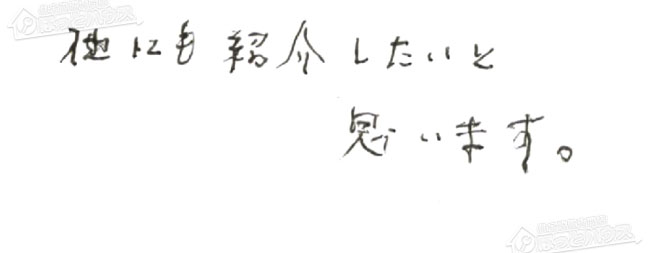 他にも紹介したいと
思います。